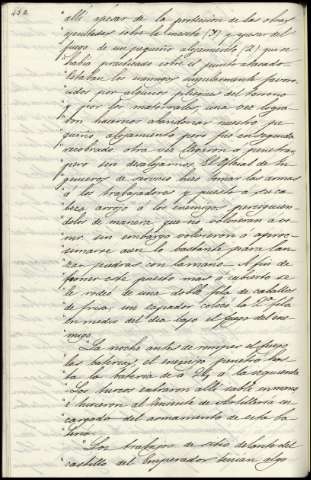 452
allí apesar de la protección de las obras
ejecutadas sobre la cuesta (P) y apesar del
fuego de un pequeño alojamiento (2) que se
había practicado sobre el punto atacado.
Estaban los enemigos singularmente favore-
cidos por algunos pliegues del terreno
y por los matorrales una vez logra-
ron hacernos abandonar nuestro pe-
queño alojamiento pero fue enseguida
recobrado otra vez llegaron á penetrar
pero son desalojarnos. El oficial de In-
genieros de servicio hizo tomar las armas
á los trabajadores y puesto á su ca-
beza arrojó á los enemigos persiguien-
doles de manera que no volvieran a ve-
nir sin embargo volvieron á aproxi-
marse aun lo bastante para lan-
zar piedras con la mano. A fin de
poner este puesto mas á cubierto se
le rodeó de una doble fila de caballos
de frisa; un zapador colocó la 2ª fila
en medio del dia bajo el fuego del ene-
migo.
La noche antes de romper el fuego
las baterias, el enemigo penetró has-
ta la bateria de á 24 á la izquierda
Los turcos entraron allí sable en mano
é hirieron al teniente de Artillería en-
cargado del armamento de esta ba-
teria.
Los trabajos de sitio delante del
castillo del Emperador tenian algo